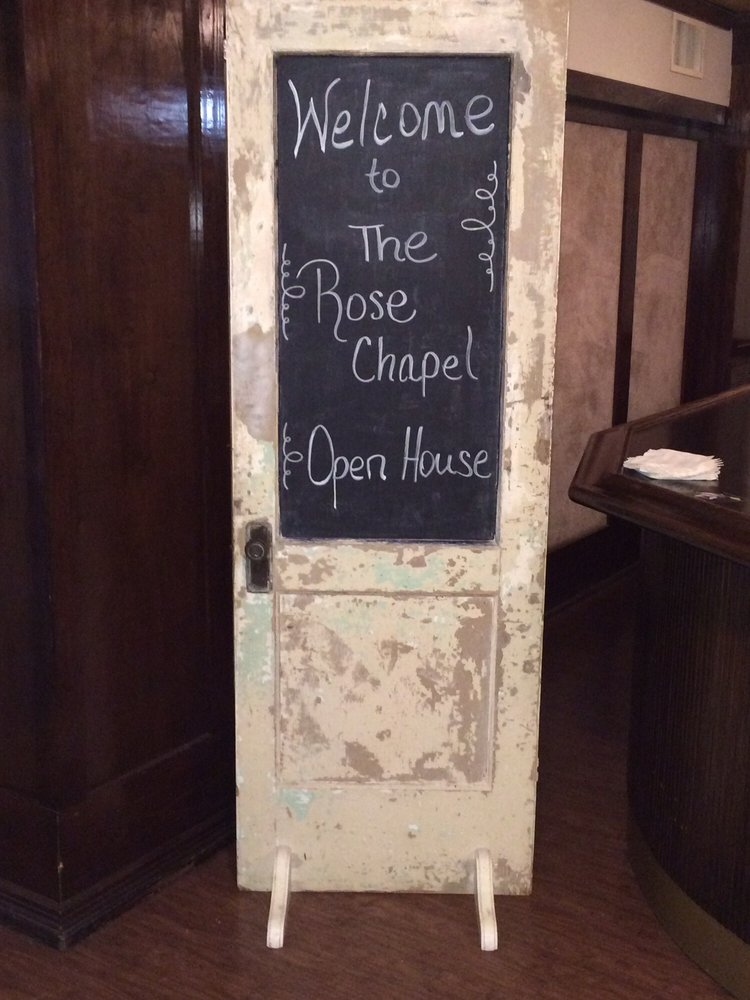 Welcome
to
The
Rose
Chapel
Open House